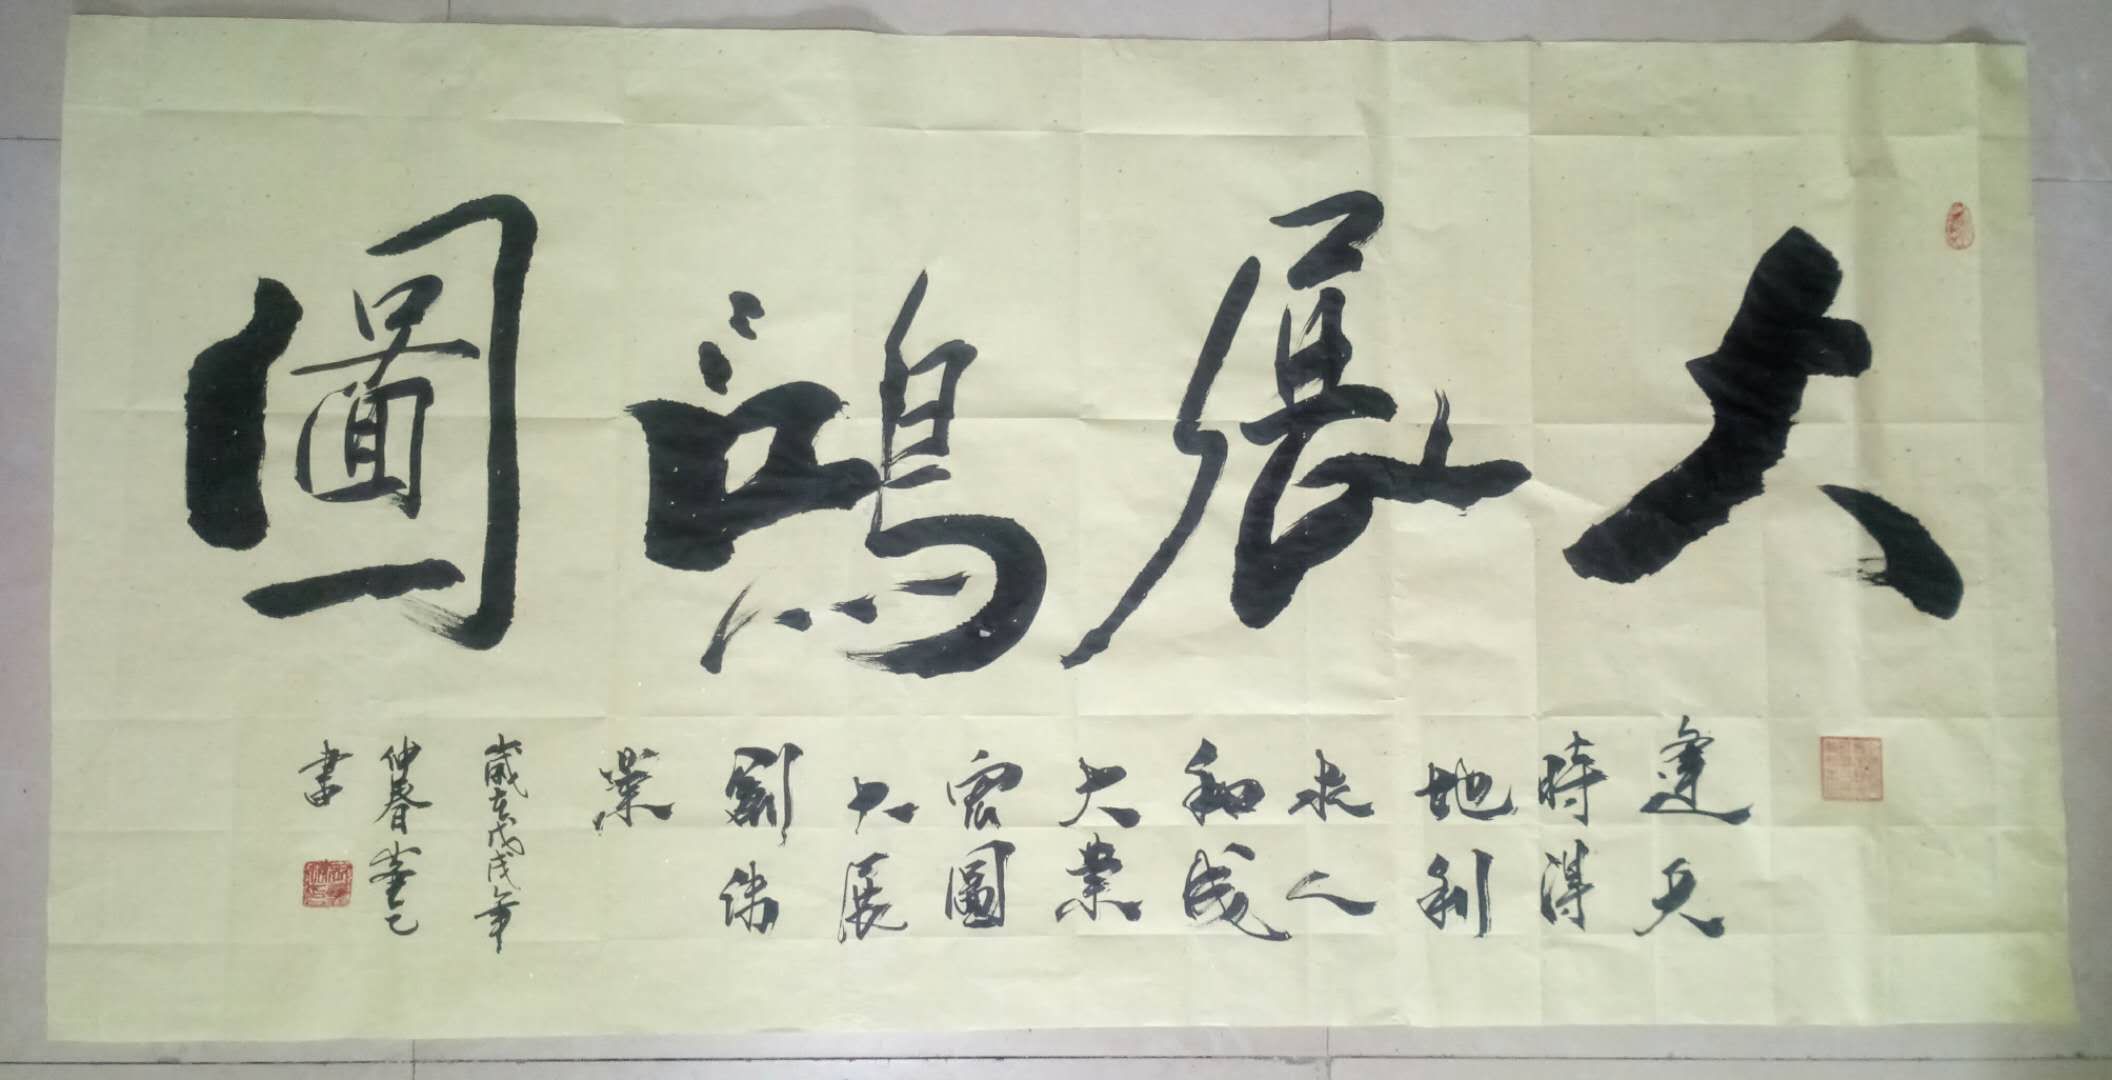 大展鴻圖
逢天
時得
地利
求人
和成
大業
宏圖
大展
創偉
業
歲在戊戌年
仲春
書